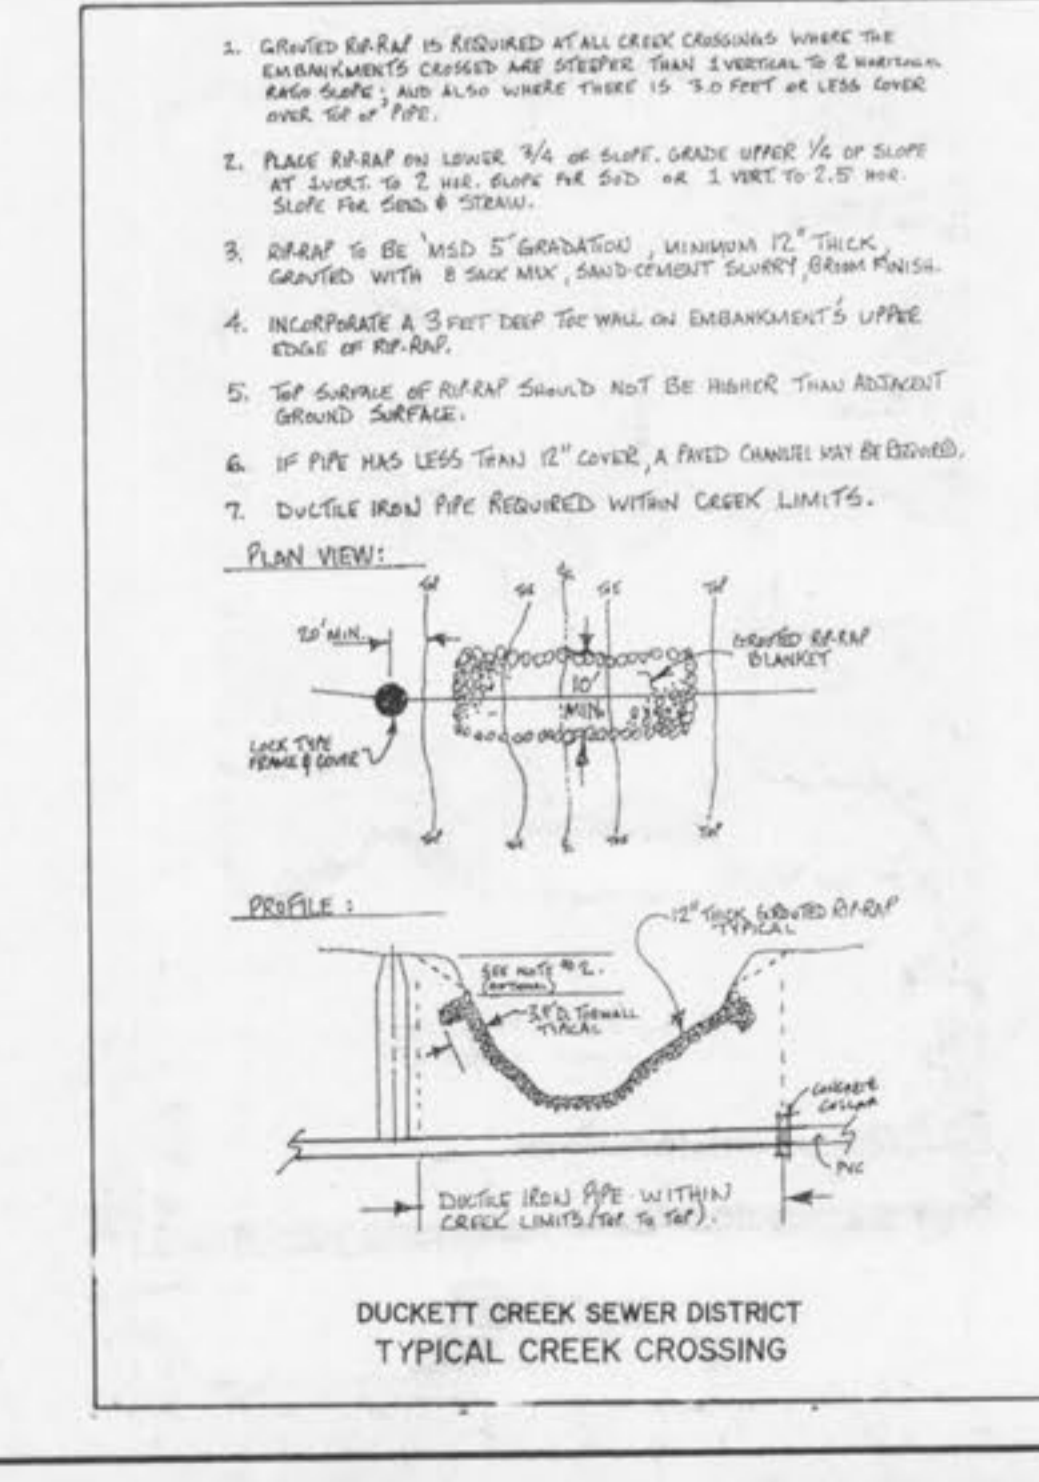 1. GROUTED RIP-RAP IS REQUIRED AT ALL CREEK CROSSINGS WHERE THE
EMBANKMENTS CROSSED ARE STEEPER THAN 1 VERTICAL TO 2 HORIZONAL
RATIO SLOPE; AND ALSO WHERE THERE IS 3.0 FEET OR LESS COVER
OVER TOP OF PIPE.
2. PLACE RIP-RAP ON LOWER 3/4 OF SLOPE. GRADE UPPER 1/4 OF SLOPE
AT 1 VERT. TO 2 HOR. SLOPE FOR SOD OR 1 VERT. TO 2.5 HOR.
SLOPE FOR SEED & STRAW.
3. RIP-RAP TO BE 'MSD 5" GRADATION, MINIMUM 12" THICK,
GROUTED WITH 8 SACK MIX, SAND-CEMENT SLURRY, BROOM FINISH.
4. INCORPORATE A 3 FEET DEEP TOE WALL ON EMBANKMENT'S UPPER
EDGE OF RIP-RAP.
5. TOP SURFACE OF RIP-RAP SHOULD NOT BE HIGHER THAN ADJACENT
GROUND SURFACE.
6. IF PIPE HAS LESS THAN 12" COVER, A PAVED CHANNEL MAY BE REQUIRED.
7. DUCTILE IRON PIPE REQUIRED WITHIN CREEK LIMITS.
PLAN VIEW:
TOP TOE TOE TOP
20' MIN.
GROUTED RIP-RAP
BLANKET
10'
MIN.
LOCK TYPE
FRAME & COVER
TOP TOE TOE TOP
PROFILE:
12" THICK GROUTED RIP-RAP
TYPICAL
SEE NOTE #2.
(OPTIONAL)
TOEWALL
TYPICAL
CONCRETE
COLLAR
PVC
DUCTILE IRON PIPE WITHIN
CREEK LIMITS (TOP TO TOP).
DUCKETT CREEK SEWER DISTRICT
TYPICAL CREEK CROSSING